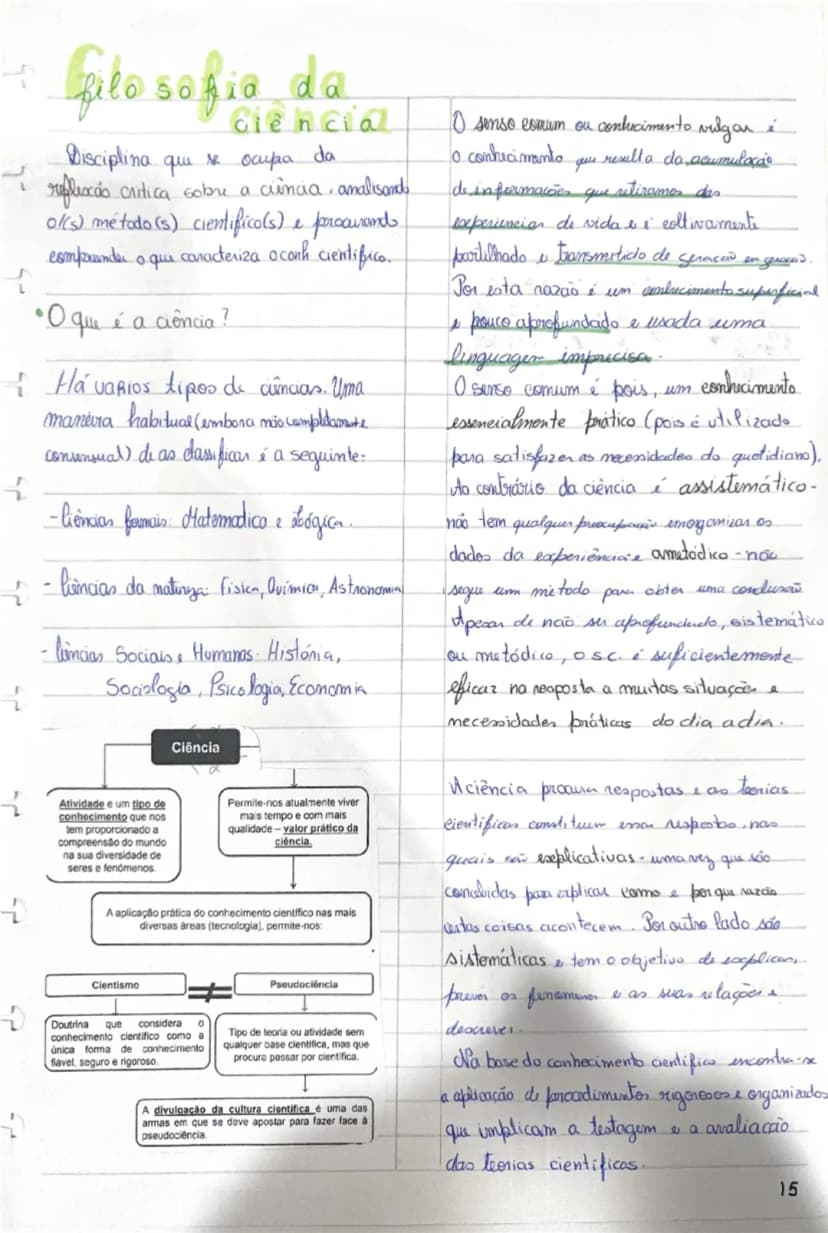 filosofia da
ciência
Disciplina que se ocupa da
reflexão crítica sobre a ciência, analisando
o/(s) método(s) científico(s) e procurando
compreender o que caracteriza o conh científico.
• O que é a ciência?
Há varios tipos de ciências. Uma
maneira habitual (embora não completamente
consensual) de as classificar é a seguinte:
- Ciências formais: Matematica e Lógica.
- Ciências da natureza: Fisica, Química, Astronomia
- Ciências Sociais e Humanas: História,
Sociologia, Psicologia, Economia
Ciência
Atividade e um tipo de
conhecimento que nos
tem proporcionado a
compreensão do mundo
na sua diversidade de
seres e fenómenos.
Permite-nos atualmente viver
mais tempo e com mais
qualidade – valor prático da
ciência.
A aplicação prática do conhecimento científico nas mais
diversas áreas (tecnologia), permite-nos:
Cientismo
≠
Pseudociência
Doutrina que considera o
conhecimento científico como a
única forma de conhecimento
fiável, seguro e rigoroso.
Tipo de teoria ou atividade sem
qualquer base científica, mas que
procura passar por científica.
A divulgação da cultura científica é uma das
armas em que se deve apostar para fazer face à
pseudociência.
O senso comum ou conhecimento vulgar é
o conhecimento que resulta da acumulação
de informações que retiramos das
experiencias de vida e é
partilhado e transmitido de geração em geração.
Por esta razão é um conhecimento superficial
e pouco aprofundado e usada uma
linguagem imprecisa.
O senso comum é pois, um conhecimento
essencialmente prático (pois é utilizado
para satisfazer as necessidades do quotidiano).
Ao contrário da ciência é assistemático -
não tem qualquer preocupação em organizar os
dados da experiência e ametódico - não
segue um método para obter uma conclusão
Apesar de não ser aprofundado, sistemático
ou metódico, o s.c. é suficientemente
eficaz na resposta a muitas situações e
necessidades práticas do dia a dia.
A ciência procura respostas e as teorias
cientificas constituem essas respostas, nas
quais são explicativas - uma vez que são
concebidas para explicar como e por que razão
certas coisas acontecem. Por outro lado são
sistemáticas e tem o objetivo de explicar,
prever os fenomenos e as suas relações e
descrever.
Na base do conhecimento cientifico encontra-se
a aplicação de procedimentos rigorosos e organizados
que implicam a testagem e a avaliação
das teorias científicas.
15